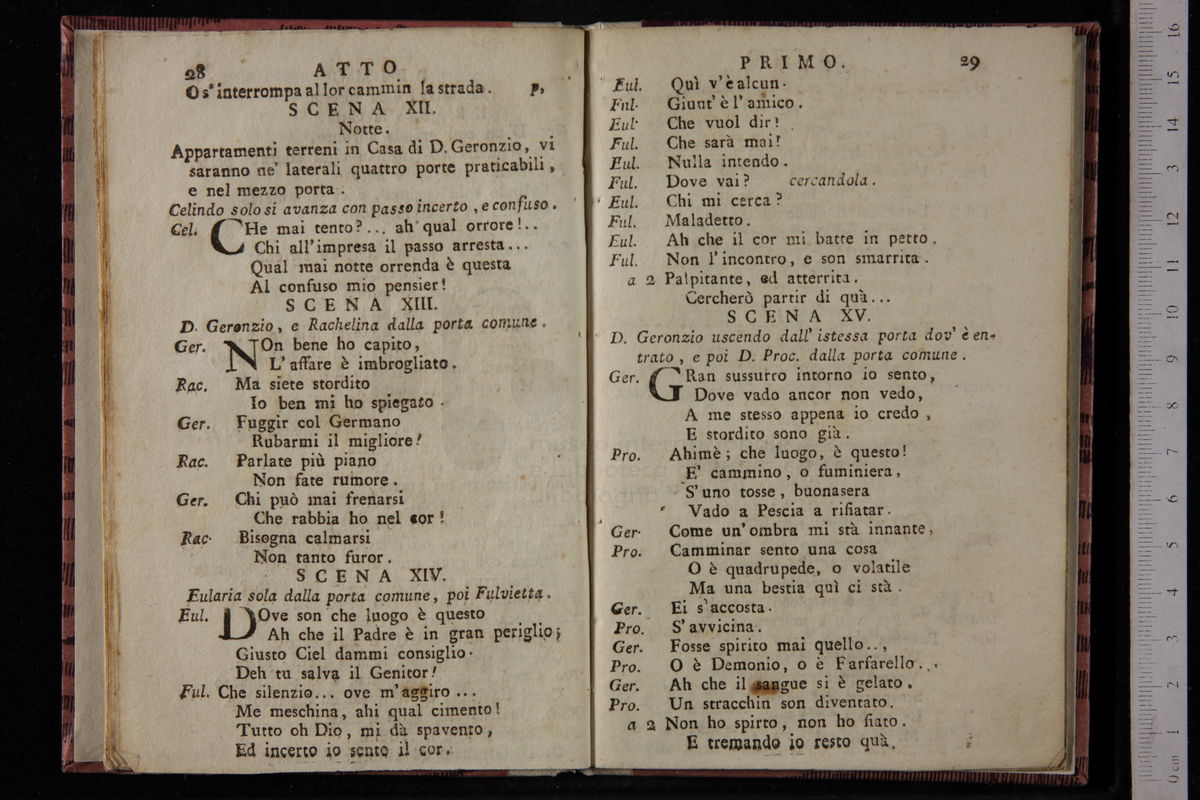 28 ATTO
O s' interrompa al lor cammin la strada. p,
SCENA XII.
Notte.
Appartamenti terreni in Casa di D. Geronzio, vi
saranno ne' laterali quattro porte praticabili,
e nel mezzo porta.
Celindo solo si avanza con passo incerto, e confuso.
Cel. CHe mai tento?... ah qual orrore!..
Chi all'impresa il passo arresta...
Qual mai notte orrenda è questa
Al confuso mio pensier!
SCENA XIII.
D. Geronzio, e Rachelina dalla porta comune.
Ger. NOn bene ho capito,
L'affare è imbrogliato.
Rac. Ma siete stordito
Io ben mi ho spiegato.
Ger. Fuggir col Germano
Rubarmi il migliore!
Rac. Parlate più piano
Non fate rumore.
Ger. Chi può mai frenarsi
Che rabbia ho nel cor!
Rac. Bisogna calmarsi
Non tanto furor.
SCENA XIV.
Eularia sola dalla porta comune, poi Fulvietta.
Eul. DOve son che luogo è questo
Ah che il Padre è in gran periglio;
Giusto Ciel dammi consiglio.
Deh tu salva il Genitor!
Ful. Che silenzio... ove m'aggiro...
Me meschina, ahi qual cimento!
Tutto oh Dio, mi dà spavento,
Ed incerto io sento il cor.
PRIMO. 29
Eul. Quì v'è alcun.
Ful. Giunt' è l'amico.
Eul. Che vuol dir!
Ful. Che sarà mai!
Eul. Nulla intendo.
Ful. Dove vai? cercandola.
Eul. Chi mi cerca?
Ful. Maladetto.
Eul. Ah che il cor mi batte in petto.
Ful. Non l'incontro, e son smarrita.
a 2 Palpitante, ed atterrita.
Cercherò partir di quà...
SCENA XV.
D. Geronzio uscendo dall' istessa porta dov' è en-
trato, e poi D. Proc. dalla porta comune.
Ger. GRan sussurro intorno io sento,
Dove vado ancor non vedo,
A me stesso appena io credo,
E stordito sono già.
Pro. Ahimè; che luogo, è questo!
E' cammino, o fuminiera,
S'uno tosse, buonasera
Vado a Pescia a rifiatar.
Ger. Come un'ombra mi stà innante,
Pro. Camminar sento una cosa
O è quadrupede, o volatile
Ma una bestia quì ci stà.
Ger. Ei s'accosta.
Pro. S'avvicina.
Ger. Fosse spirito mai quello..,
Pro. O è Demonio, o è Farfarello...
Ger. Ah che il sangue si è gelato.
Pro. Un stracchin son diventato.
a 2 Non ho spirto, non ho fiato.
E tremando io resto quà.
0 cm 1 2 3 4 5 6 7 8 9 10 11 12 13 14 15 16